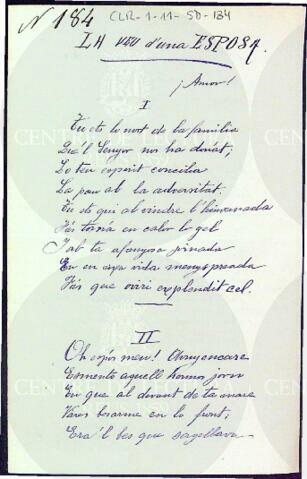 Nº 184
CLR-1-11-SD-134
LA VEU d'una ESPOSA.
¡Amor!
I
Tu ets lo nort de la familia
Que'l Senyor nos ha donat;
Lo teu esperit concilia
La pau ab la adversitat;
Tu ets qui al vindre l'hivernada
Fas torná en calor lo gel
Y ab ta afanyosa jornada
En en vida menyspreada
Fas que oviri explendit cel.
II
Oh espós meu! Anyencare
Esmento aquell hermós jorn
En que al devant de ta mare
Vares besarme en lo front;
Era'l bes que sagellava
CENTRE DE LECTURA